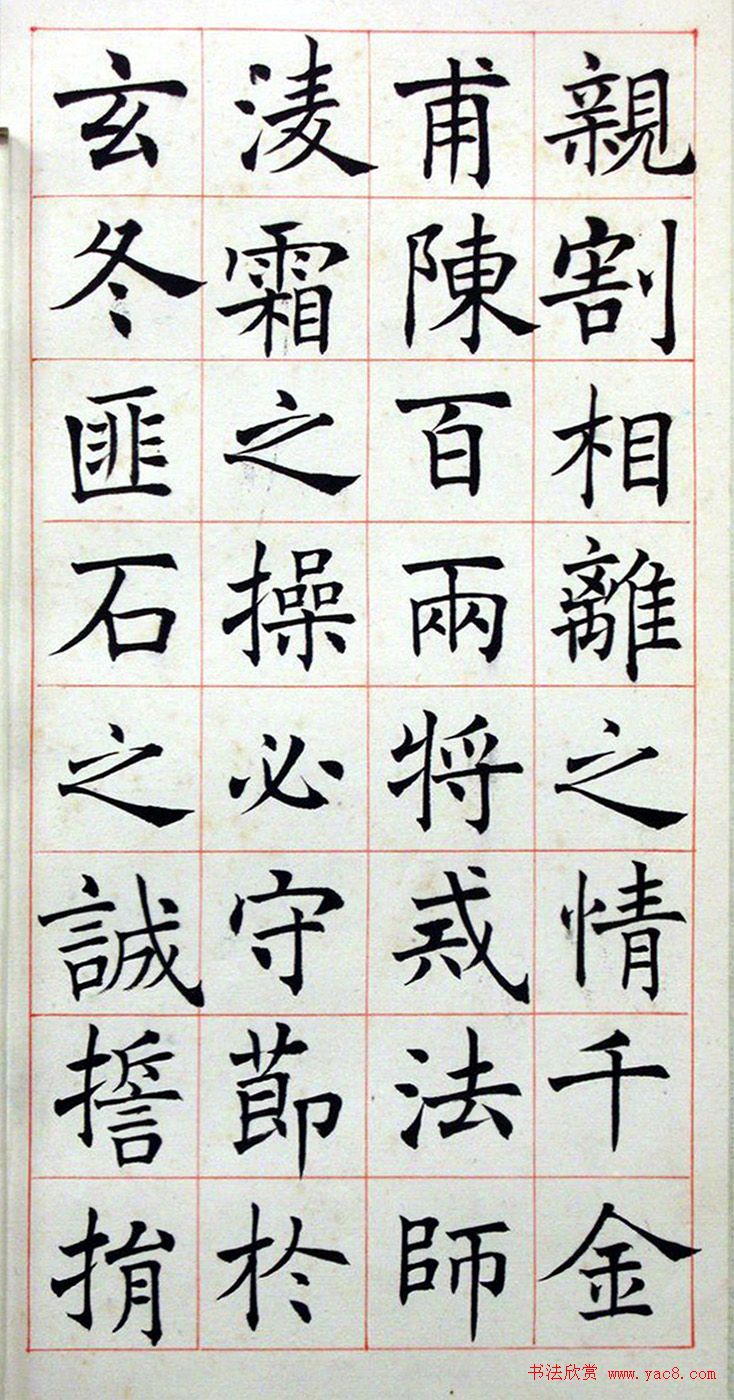 親割相離之情千金
甫陳百兩將戒法師
淩霜之操必守莭於
玄冬匪石之誠誓捐
书法欣赏 www.yac8.com